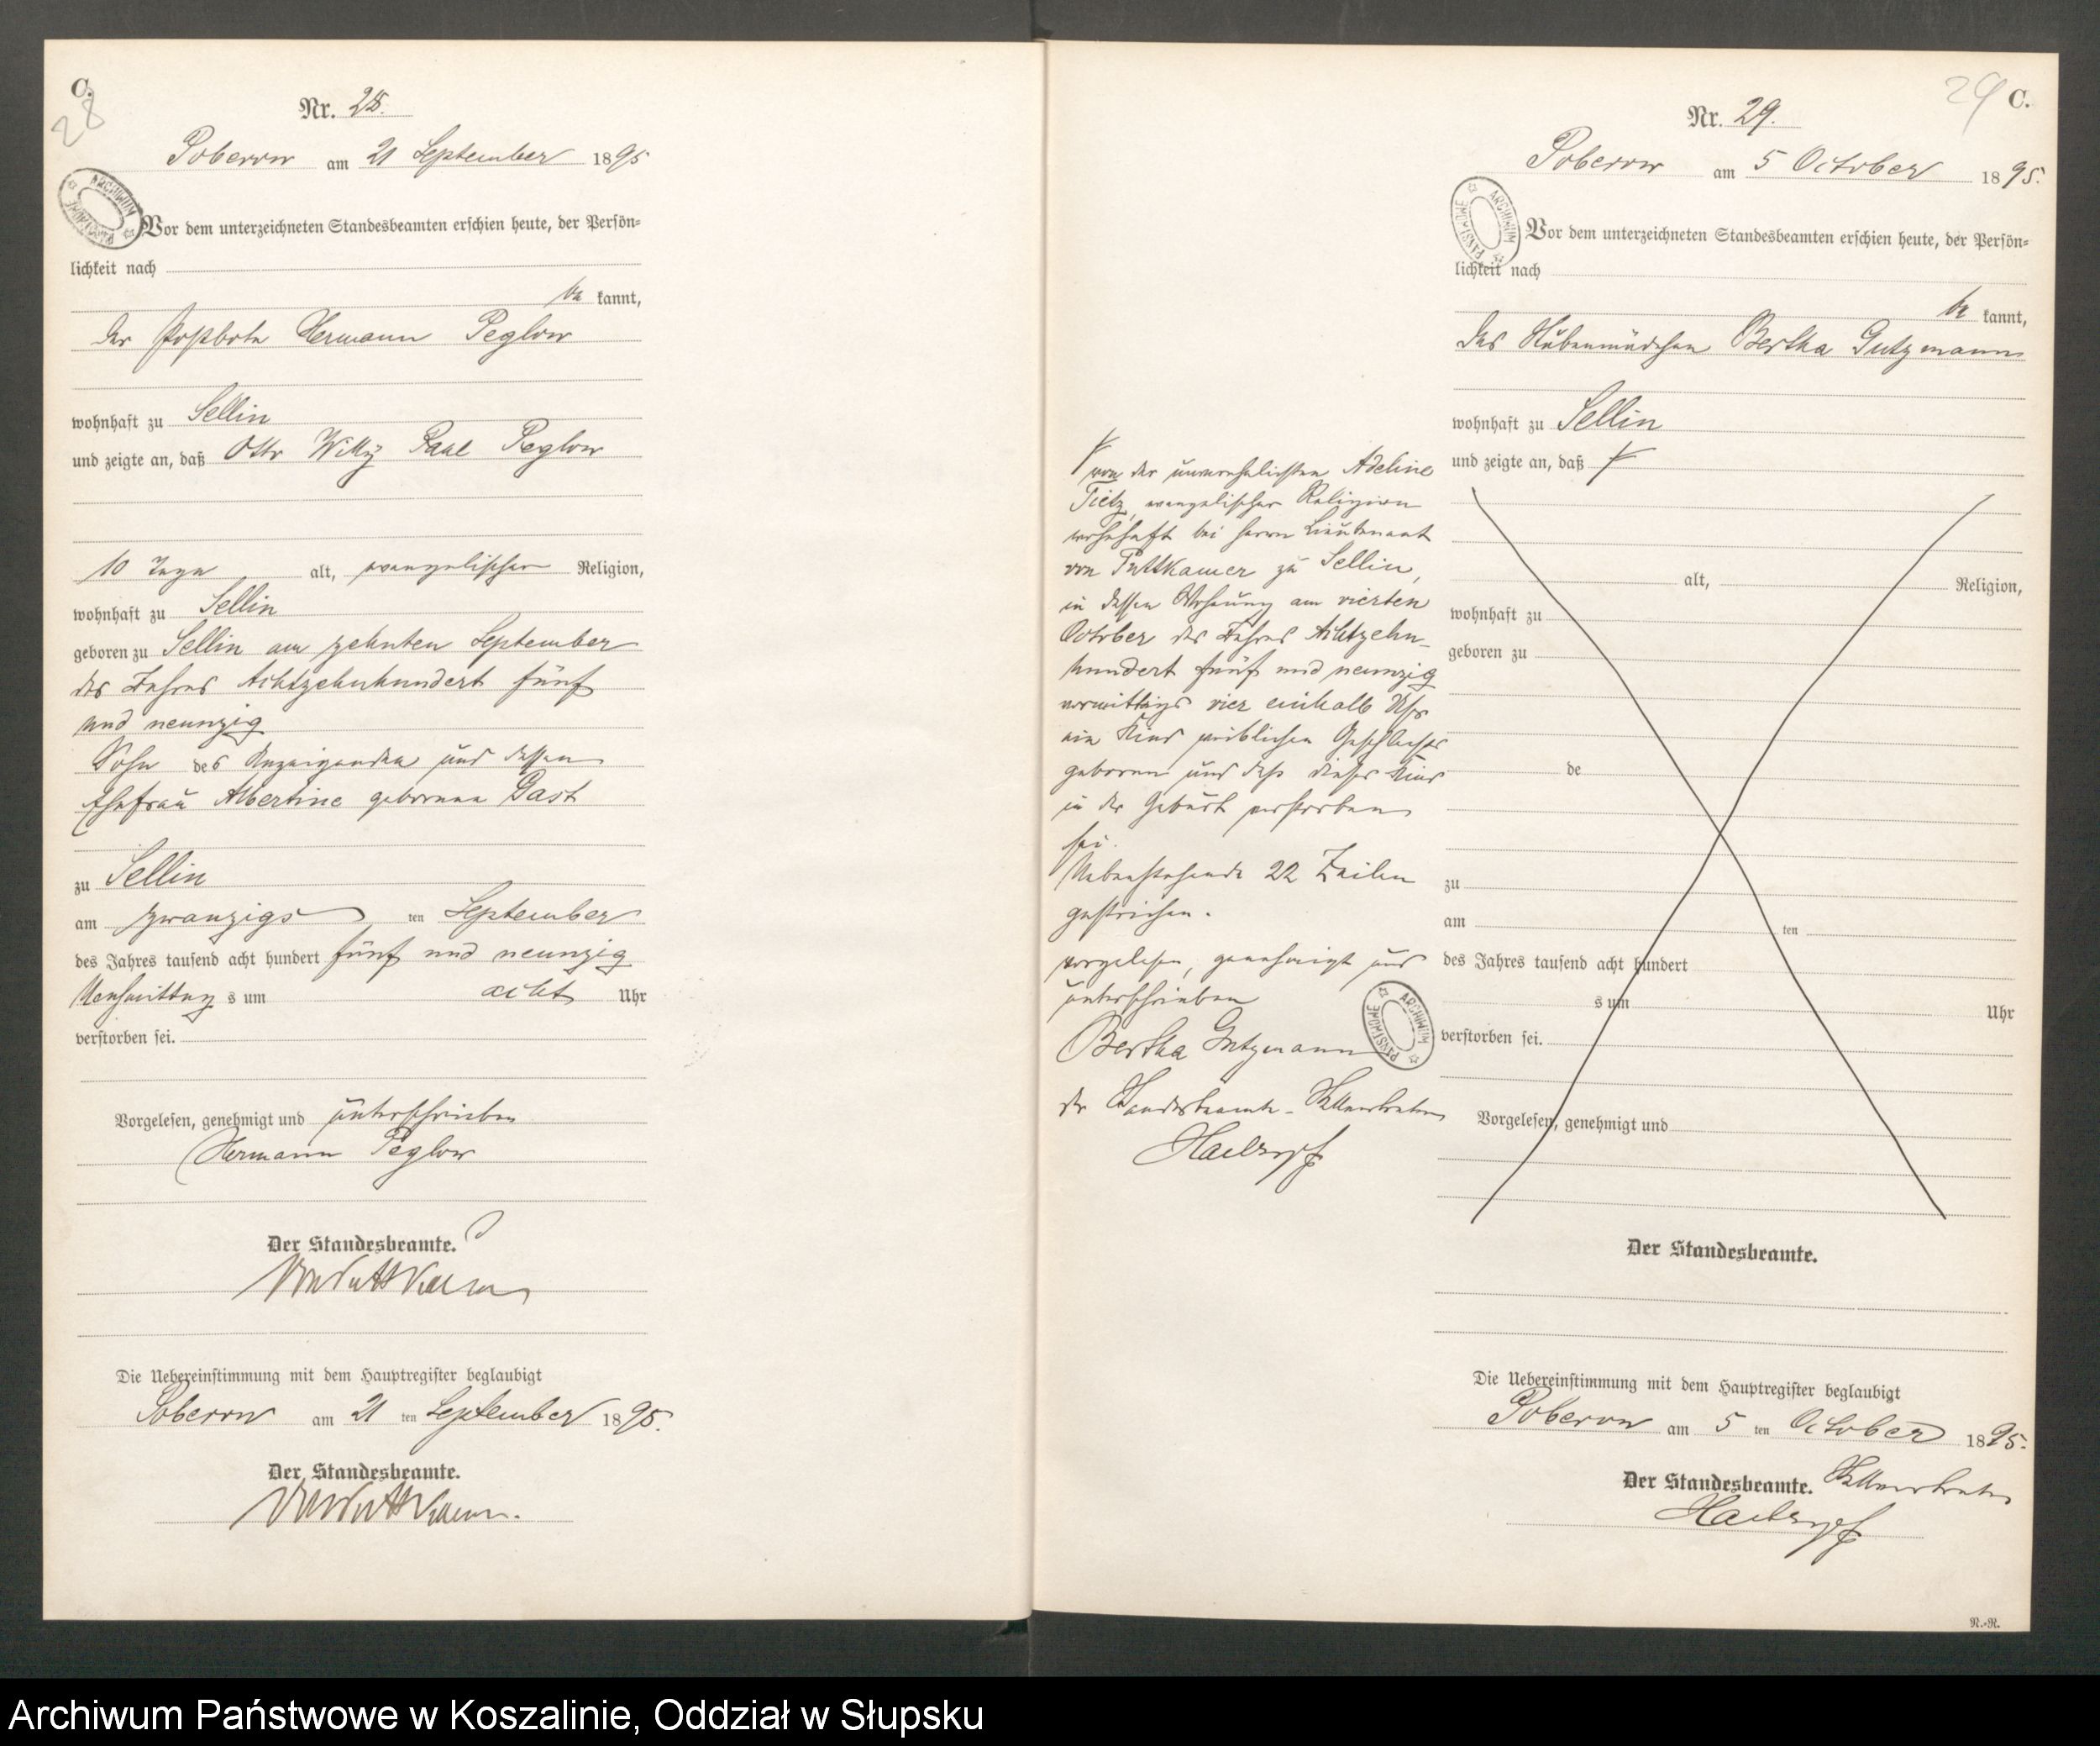 C.
28
Nr. 28.
Poberow am 21 September 1895
ARCHIWUM PAŃSTWOWE
Vor dem unterzeichneten Standesbeamten erschien heute, der Persön-
lichkeit nach
be kannt,
der Postbote Hermann Peglow
wohnhaft zu Sellin
und zeigte an, daß Otto Willy Paul Peglow
10 Tage alt, evangelischer Religion,
wohnhaft zu Sellin
geboren zu Sellin am zehnten September
des Jahres Achtzehnhundert fünf
und neunzig
Sohn des Anzeigenden und dessen
Ehefrau Albertine geborenen Dast
zu Sellin
am zwanzigs ten September
des Jahres tausend acht hundert fünf und neunzig
Nachmittag s um acht Uhr
verstorben sei.
Vorgelesen, genehmigt und unterschrieben
Hermann Peglow
Der Standesbeamte.
von Puttkamer
Die Uebereinstimmung mit dem Hauptregister beglaubigt
Poberow am 21 ten September 1895.
Der Standesbeamte.
von Puttkamer.
29 C.
Nr. 29.
Poberow am 5 October 1895.
ARCHIWUM PAŃSTWOWE
Vor dem unterzeichneten Standesbeamten erschien heute, der Persön-
lichkeit nach
be kannt,
das Stubenmädchen Bertha Gutzmann
wohnhaft zu Sellin
und zeigte an, daß
alt, Religion,
wohnhaft zu
geboren zu
de
zu
am ten
des Jahres tausend acht hundert
s um Uhr
verstorben sei.
Vorgelesen, genehmigt und
von der unverehelichten Adeline
Tietz, evangelischer Religion
wohnhaft bei Herrn Lieutenant
von Puttkamer zu Sellin,
in dessen Wohnung am vierten
October des Jahres Achtzehn-
hundert fünf und neunzig
vormittags vier einhalb Uhr
ein Kind weiblichen Geschlechts
geboren und daß dieses Kind
in der Geburt verstorben
sei.
Nebenstehende 22 Zeilen
gestrichen.
vorgelesen, genehmigt und
unterschrieben
Bertha Gutzmann
ARCHIWUM PAŃSTWOWE
der Standesbeamte-Stellvertreter
Der Standesbeamte.
Die Uebereinstimmung mit dem Hauptregister beglaubigt
Poberow am 5 ten October 1895.
Der Standesbeamte. Stellvertreter
R.-R.
Archiwum Państwowe w Koszalinie, Oddział w Słupsku